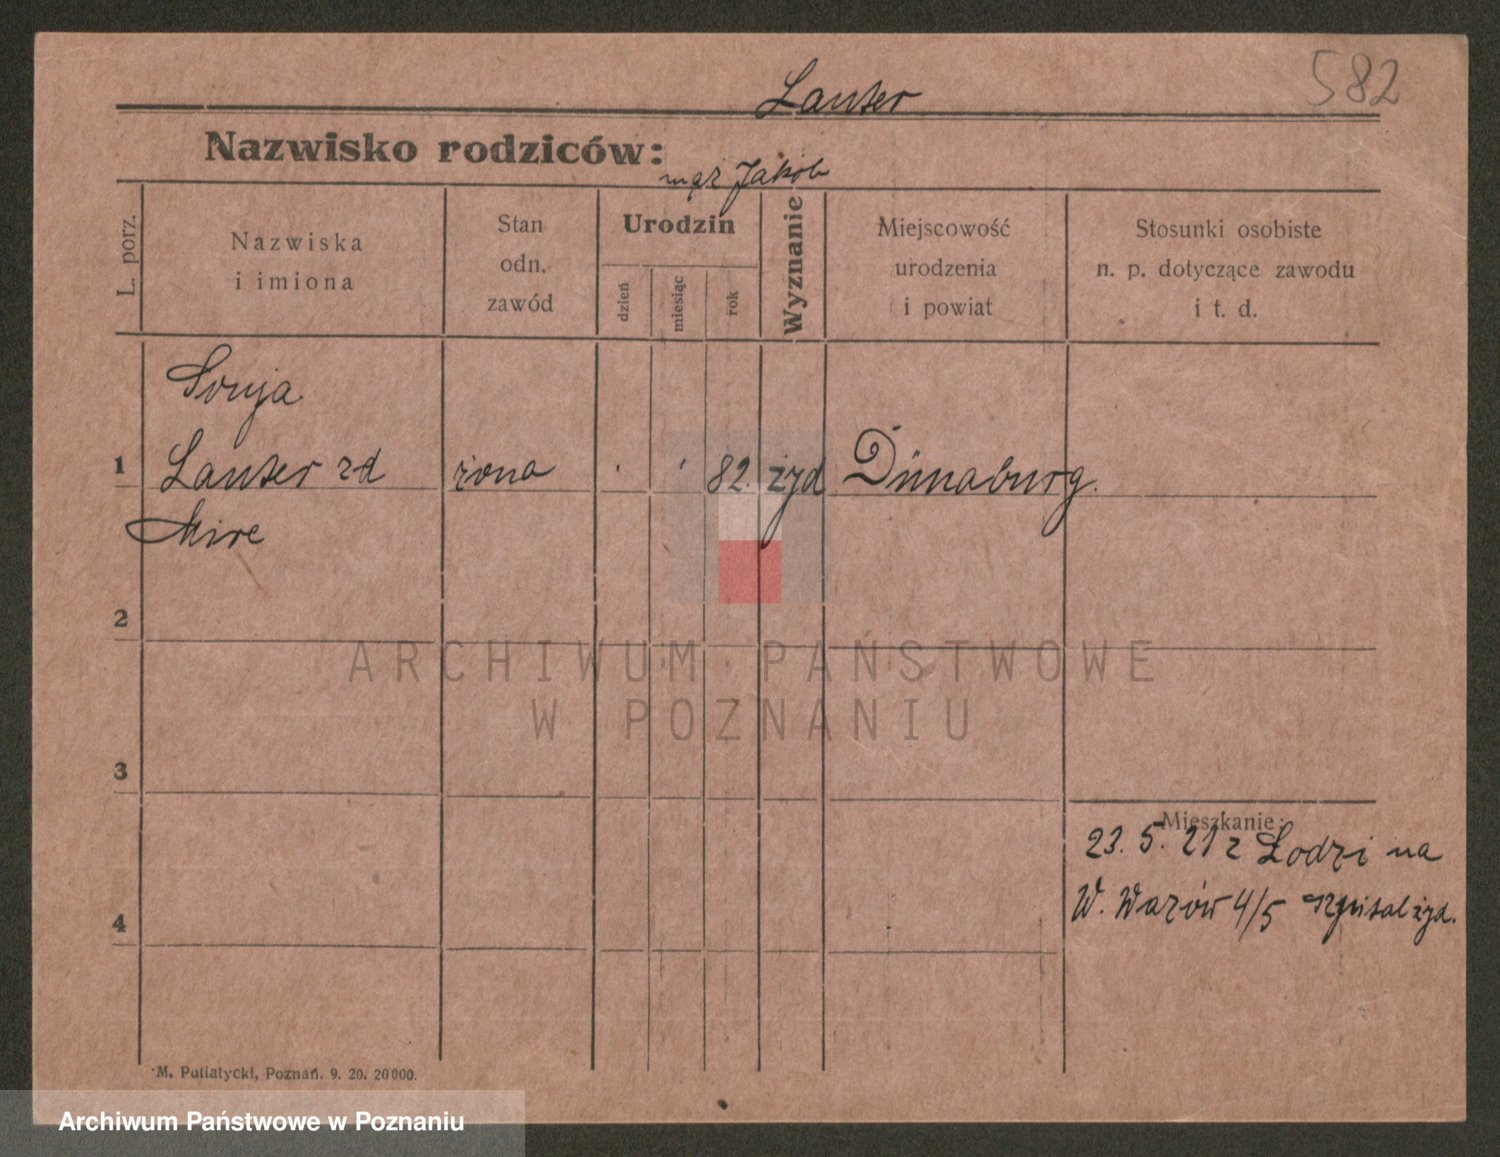 582
Lauter
Nazwisko rodziców:
mąż Jakób
L. porz.
Nazwiska
i imiona
Stan
odn.
zawód
Urodzin
dzień
miesiąc
rok
Wyznanie
Miejscowość
urodzenia
i powiat
Stosunki osobiste
n. p. dotyczące zawodu
i t. d.
Sonja
1 Lauter zd żona 82. żyd Dünaburg.
Mire
2
ARCHIWUM PAŃSTWOWE
W POZNANIU
3
Mieszkanie:
23. 5. 21 z Łodzi na
W. Wazów 4/5 szpital żyd.
4
M. Putiatycki, Poznań. 9. 20. 20000.
Archiwum Państwowe w Poznaniu